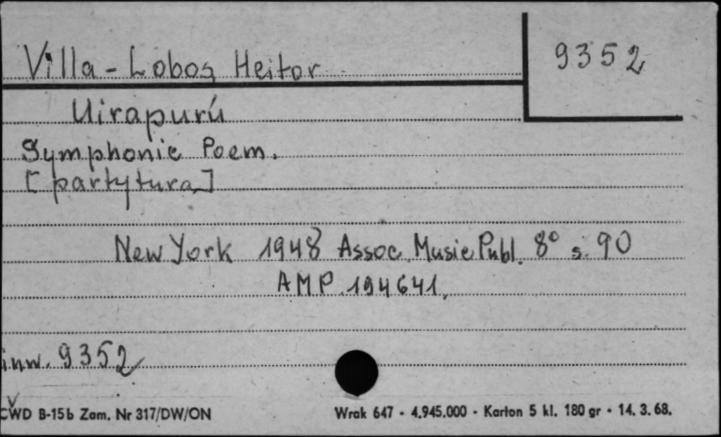 Villa-Lobos, Heitor
9352
Uirapurú
Symphonic Poem.
[partytura]
New York 1948 Assoc. Music Publ. 8° s. 90
AMP. 194641.
inw. 9352
CWD B-15b Zam. Nr 317/DW/ON
Wrak 647 - 4.945.000 - Karton 5 kl. 180 gr - 14. 3. 68.